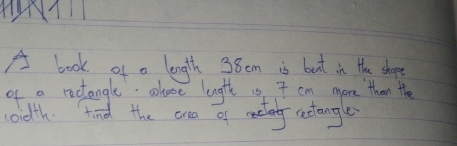 A book of a length 38cm is bent in the shape
of a rectangle. whose length is 7 cm more than the
width. Find the area of rectag rectangle.